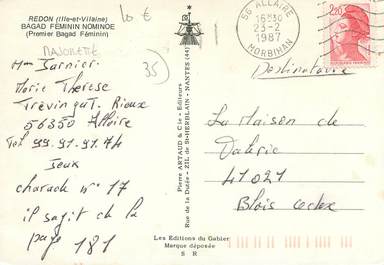 REDON (Ille-et-Vilaine)
BAGAD FÉMININ NOMINOÉ
(Premier Bagad Féminin)
MAJORETTE
10 €
35
Mme Barnier
Marie Thérèse
Trévingat. Rieux
56350 Allaire
Tel 99.91.91.74
Jeux
charade n° 17
il sagit de la
page 181
Pierre ARTAUD & Cie - Editeurs
Rue de la Dutée - ZIL de St-HERBLAIN - NANTES (44)
Les Editions du Gabier
Marque déposée
S R
56 ALLAIRE
16H30
23-2
1987
MORBIHAN
2,20
Destinataire
La Maison de
Valérie
41021
Blois cedex